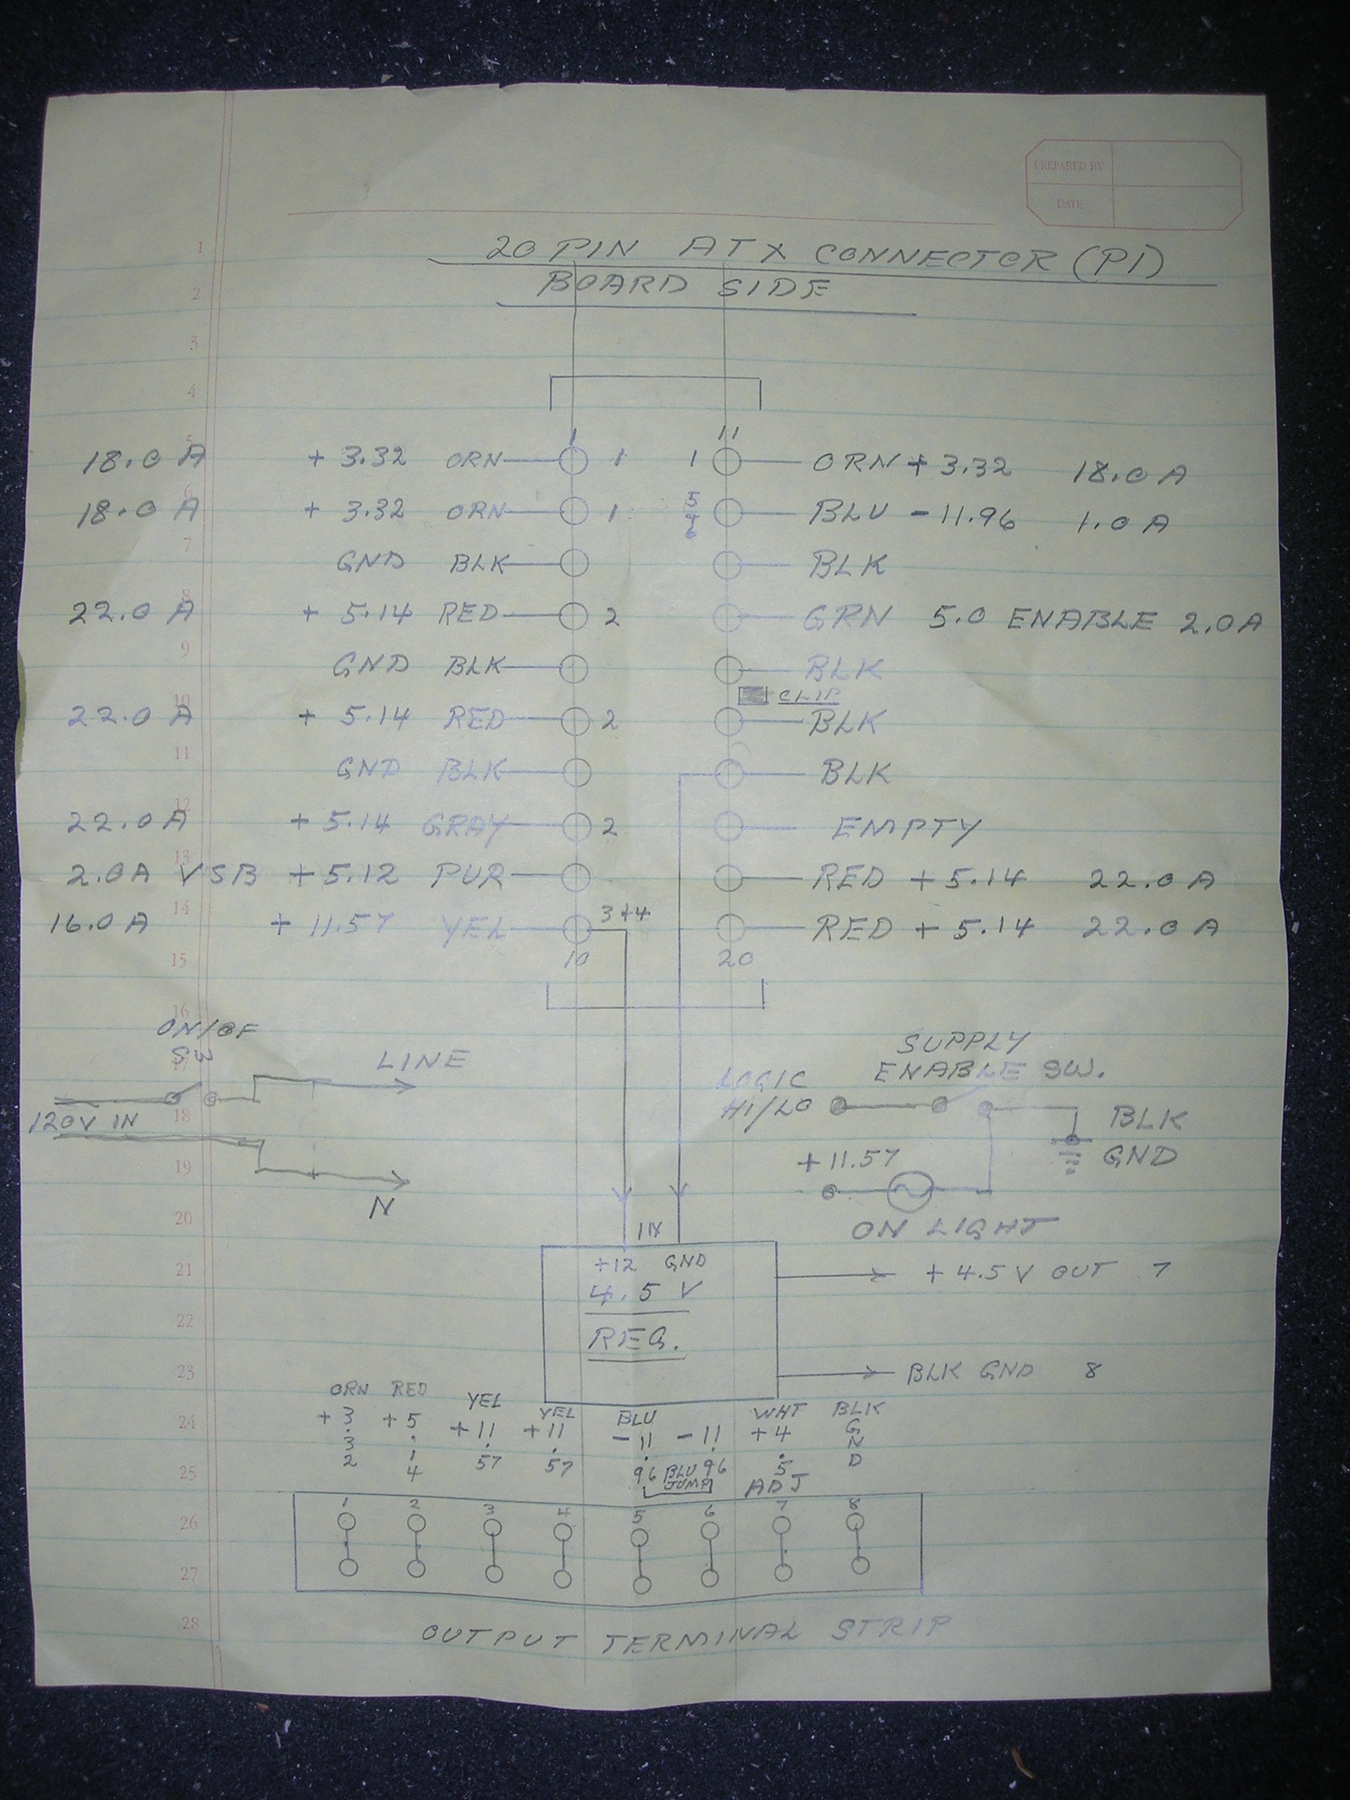 PREPARED BY
DATE
20 PIN ATX CONNECTOR (P1)
BOARD SIDE
1
2
3
4
5
6
7
8
9
10
11
12
13
14
15
16
17
18
19
20
21
22
23
24
25
26
27
28
1 11
18.0 A +3.32 ORN 1 1 ORN +3.32 18.0 A
18.0 A +3.32 ORN 1 5 & 6 BLU -11.96 1.0 A
GND BLK BLK
22.0 A +5.14 RED 2 GRN 5.0 ENABLE 2.0A
GND BLK BLK
CLIP
22.0 A +5.14 RED 2 BLK
GND BLK BLK
22.0 A +5.14 GRAY 2 EMPTY
2.0A VSB +5.12 PUR RED +5.14 22.0 A
16.0 A +11.57 YEL 3+4 RED +5.14 22.0 A
10 20
ON/OF
SW
LINE
120V IN
N
SUPPLY
ENABLE SW.
LOGIC
HI/LO
BLK
GND
+11.57
ON LIGHT
IN
+12 GND
4.5 V
REG.
+4.5 V OUT 7
BLK GND 8
ORN RED YEL YEL BLU WHT BLK
+3.32 +5.14 +11.57 +11.57 -11.96 -11.96 +4.5 GND
BLU
JUMP
ADJ
1 2 3 4 5 6 7 8
OUTPUT TERMINAL STRIP